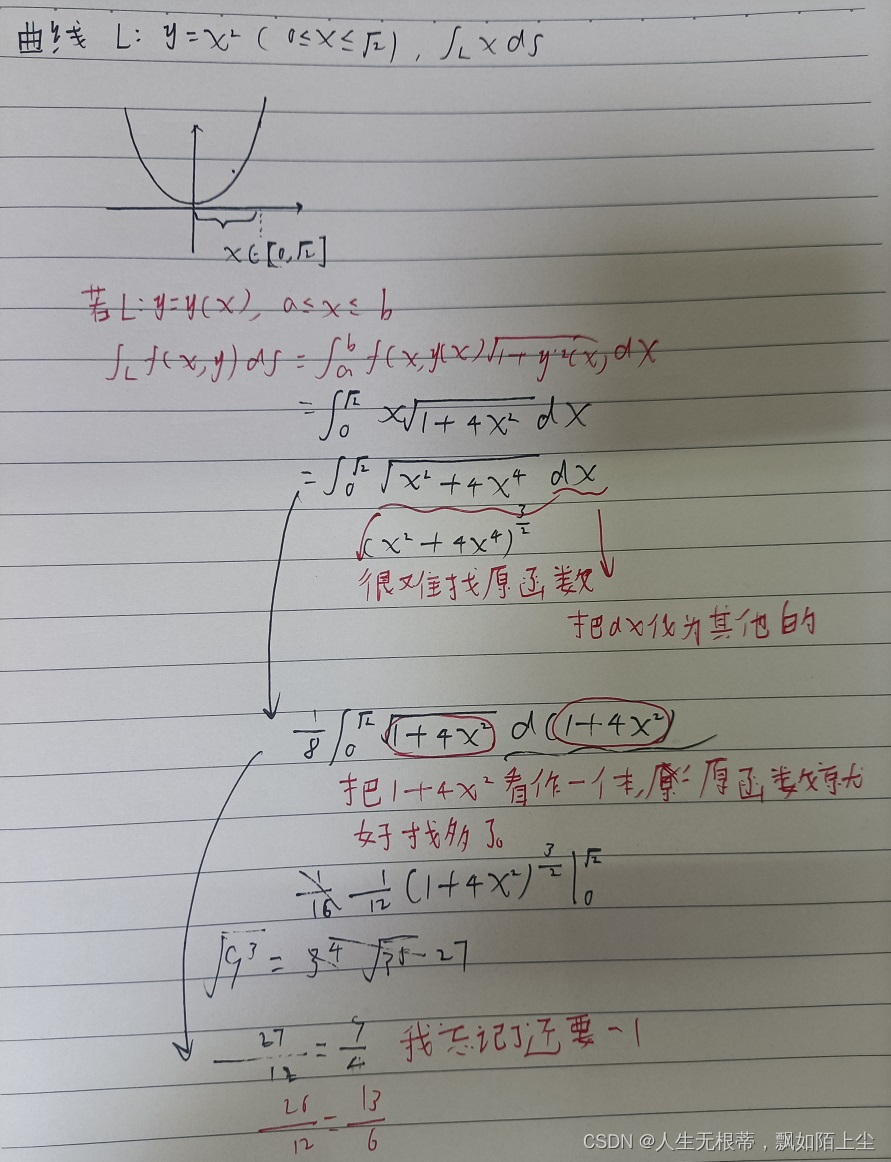 曲线 L: y=x² ( 0≤x≤√2 ), ∫_L x ds
x∈[0,√2]
若L: y=y(x), a≤x≤b
∫_L f(x,y) ds = ∫_a^b f(x,y(x))√(1+y'²(x)) dx
= ∫_0^√2 x√(1+4x²) dx
= ∫_0^√2 √(x²+4x⁴) dx
(x²+4x⁴)^(3/2)
很难找原函数
把dx化为其他的
1/8 ∫_0^√2 √(1+4x²) d(1+4x²)
把1+4x²看作一个 原函数就
好找多了。
1/16 1/12 (1+4x²)^(3/2) |_0^√2
√9³ = 3⁴ 27
27/12 = 9/4 我忘记了还要-1
26/12 = 13/6
CSDN @人生无根蒂，飘如陌上尘